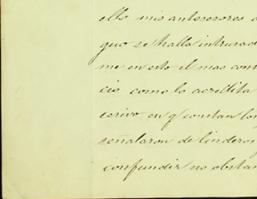 ello mis antecesores
que se halla intrusado
me en esto el mas con
cis como lo acredita
en q constan los
señalaron de linderos
confundir no obstan